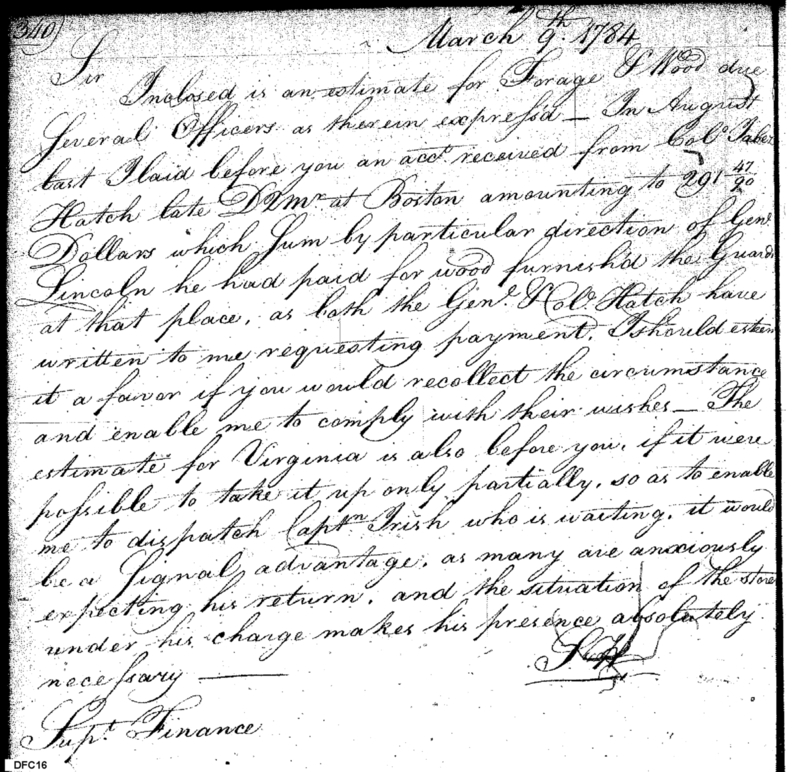 340)
March 9th. 1784
Sir
Inclosed is an estimate for Forage & Wood due
Several Officers as therein express'd — In August
last I laid before you an acct. received from Colo. Jabez
Hatch late DQMr. at Boston amounting to 291 47/90
Dollars which Sum by particular direction of Genl.
Lincoln he had paid for wood furnish'd the Guards
at that place, as both the Genl. & Colo. Hatch have
written to me requesting payment. I should esteem
it a favor if you would recollect the circumstance
and enable me to comply with their wishes — The
estimate for Virginia is also before you, if it were
possible to take it up only partially, so as to enable
me to dispatch Captn. Irish who is waiting, it would
be a Signal advantage, as many are anxiously
expecting his return, and the situation of the stores
under his charge makes his presence absolutely
necessary —
SH
Supt. Finance
DFC16